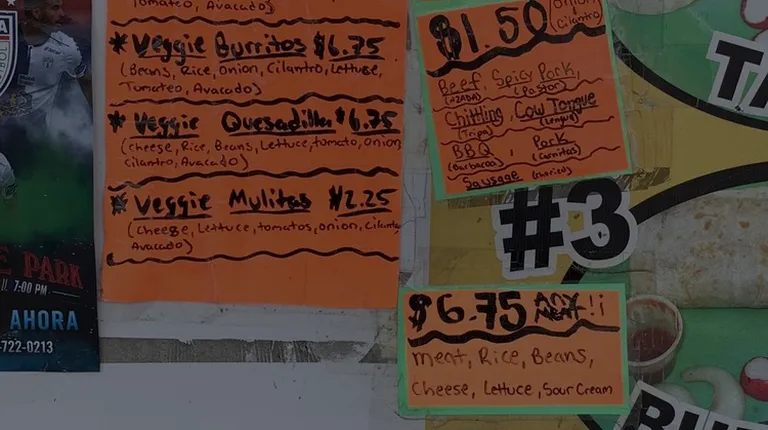 Tomatoes, Avacado)
* Veggie Burritos $6.75
(Beans, Rice, Onion, Cilantro, Lettuse,
Tomateo, Avacado)
* Veggie Quesadilla $6.75
(Cheese, Rice, Beans, Lettuce, tomato, Onion
Cilantro, Avacado)
* Veggie Mulitas $2.25
(Cheese, Lettuce, tomatos, onion, Cilanto
Avacado)
$1.50
Onion
Cilantro
Beef, Spicy Pork,
(AZADA) (Pastor)
Chittling, Cow Tongue
(Tripa) (Lengua)
BBQ, Pork
(Barbacoa) (Carnitas)
Sausage
#3
$6.75 ANY MEAT!¡
meat, Rice, Beans,
Cheese, Lettuce, Sour Cream
TA
BU
E PARK
7:00 PM
AHORA
-722-0213